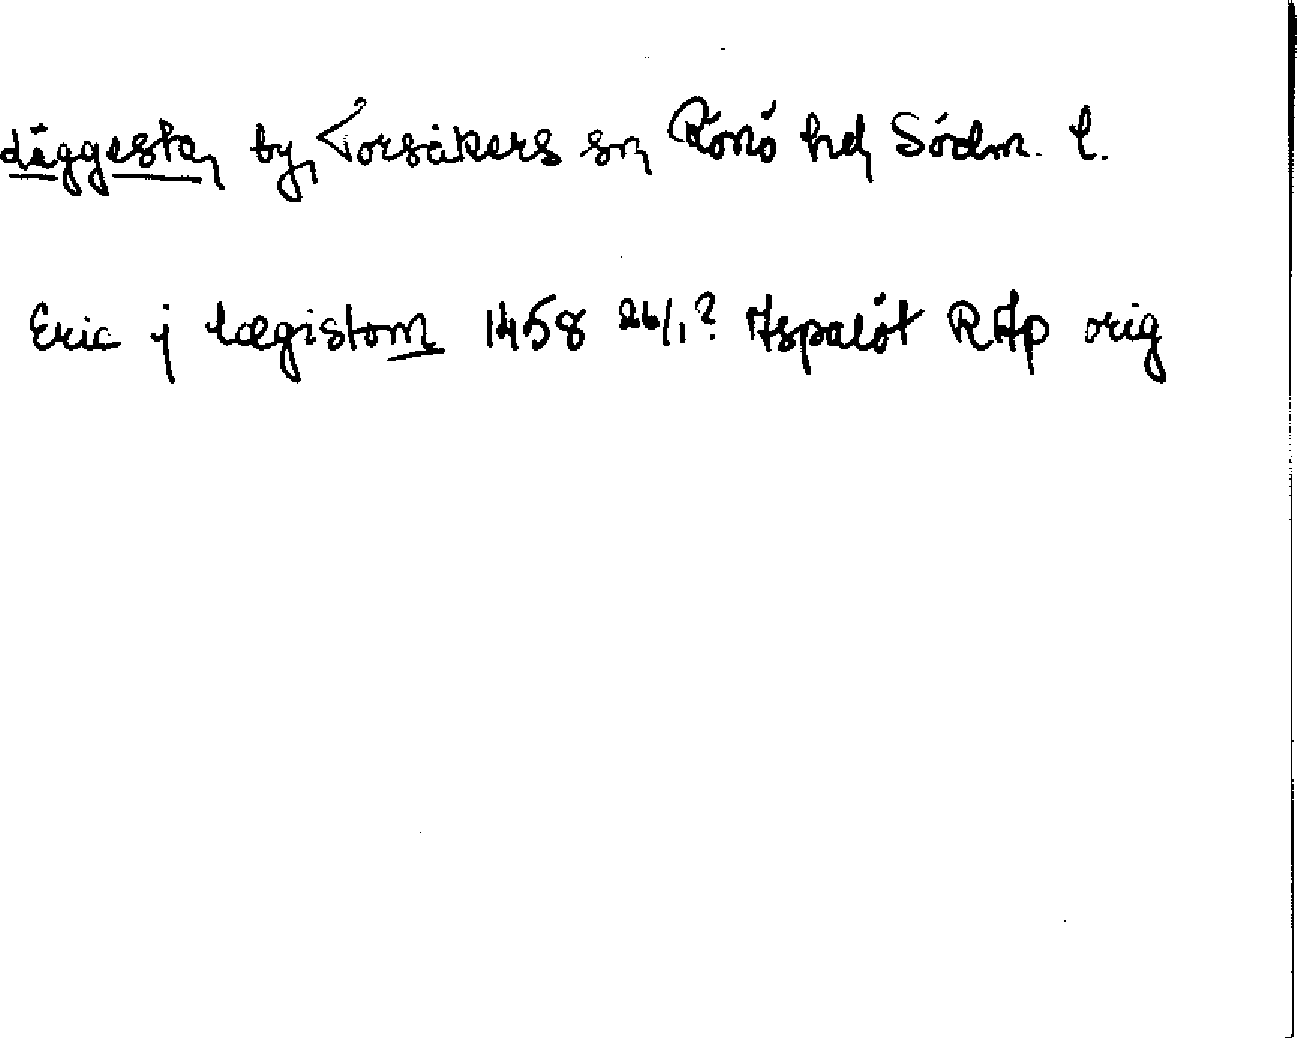 Läggesta, by, Torsåkers sn, Rönö hd, Södm. l.
Eric j lægistom 1458 26/1? Aspalöt RAp orig